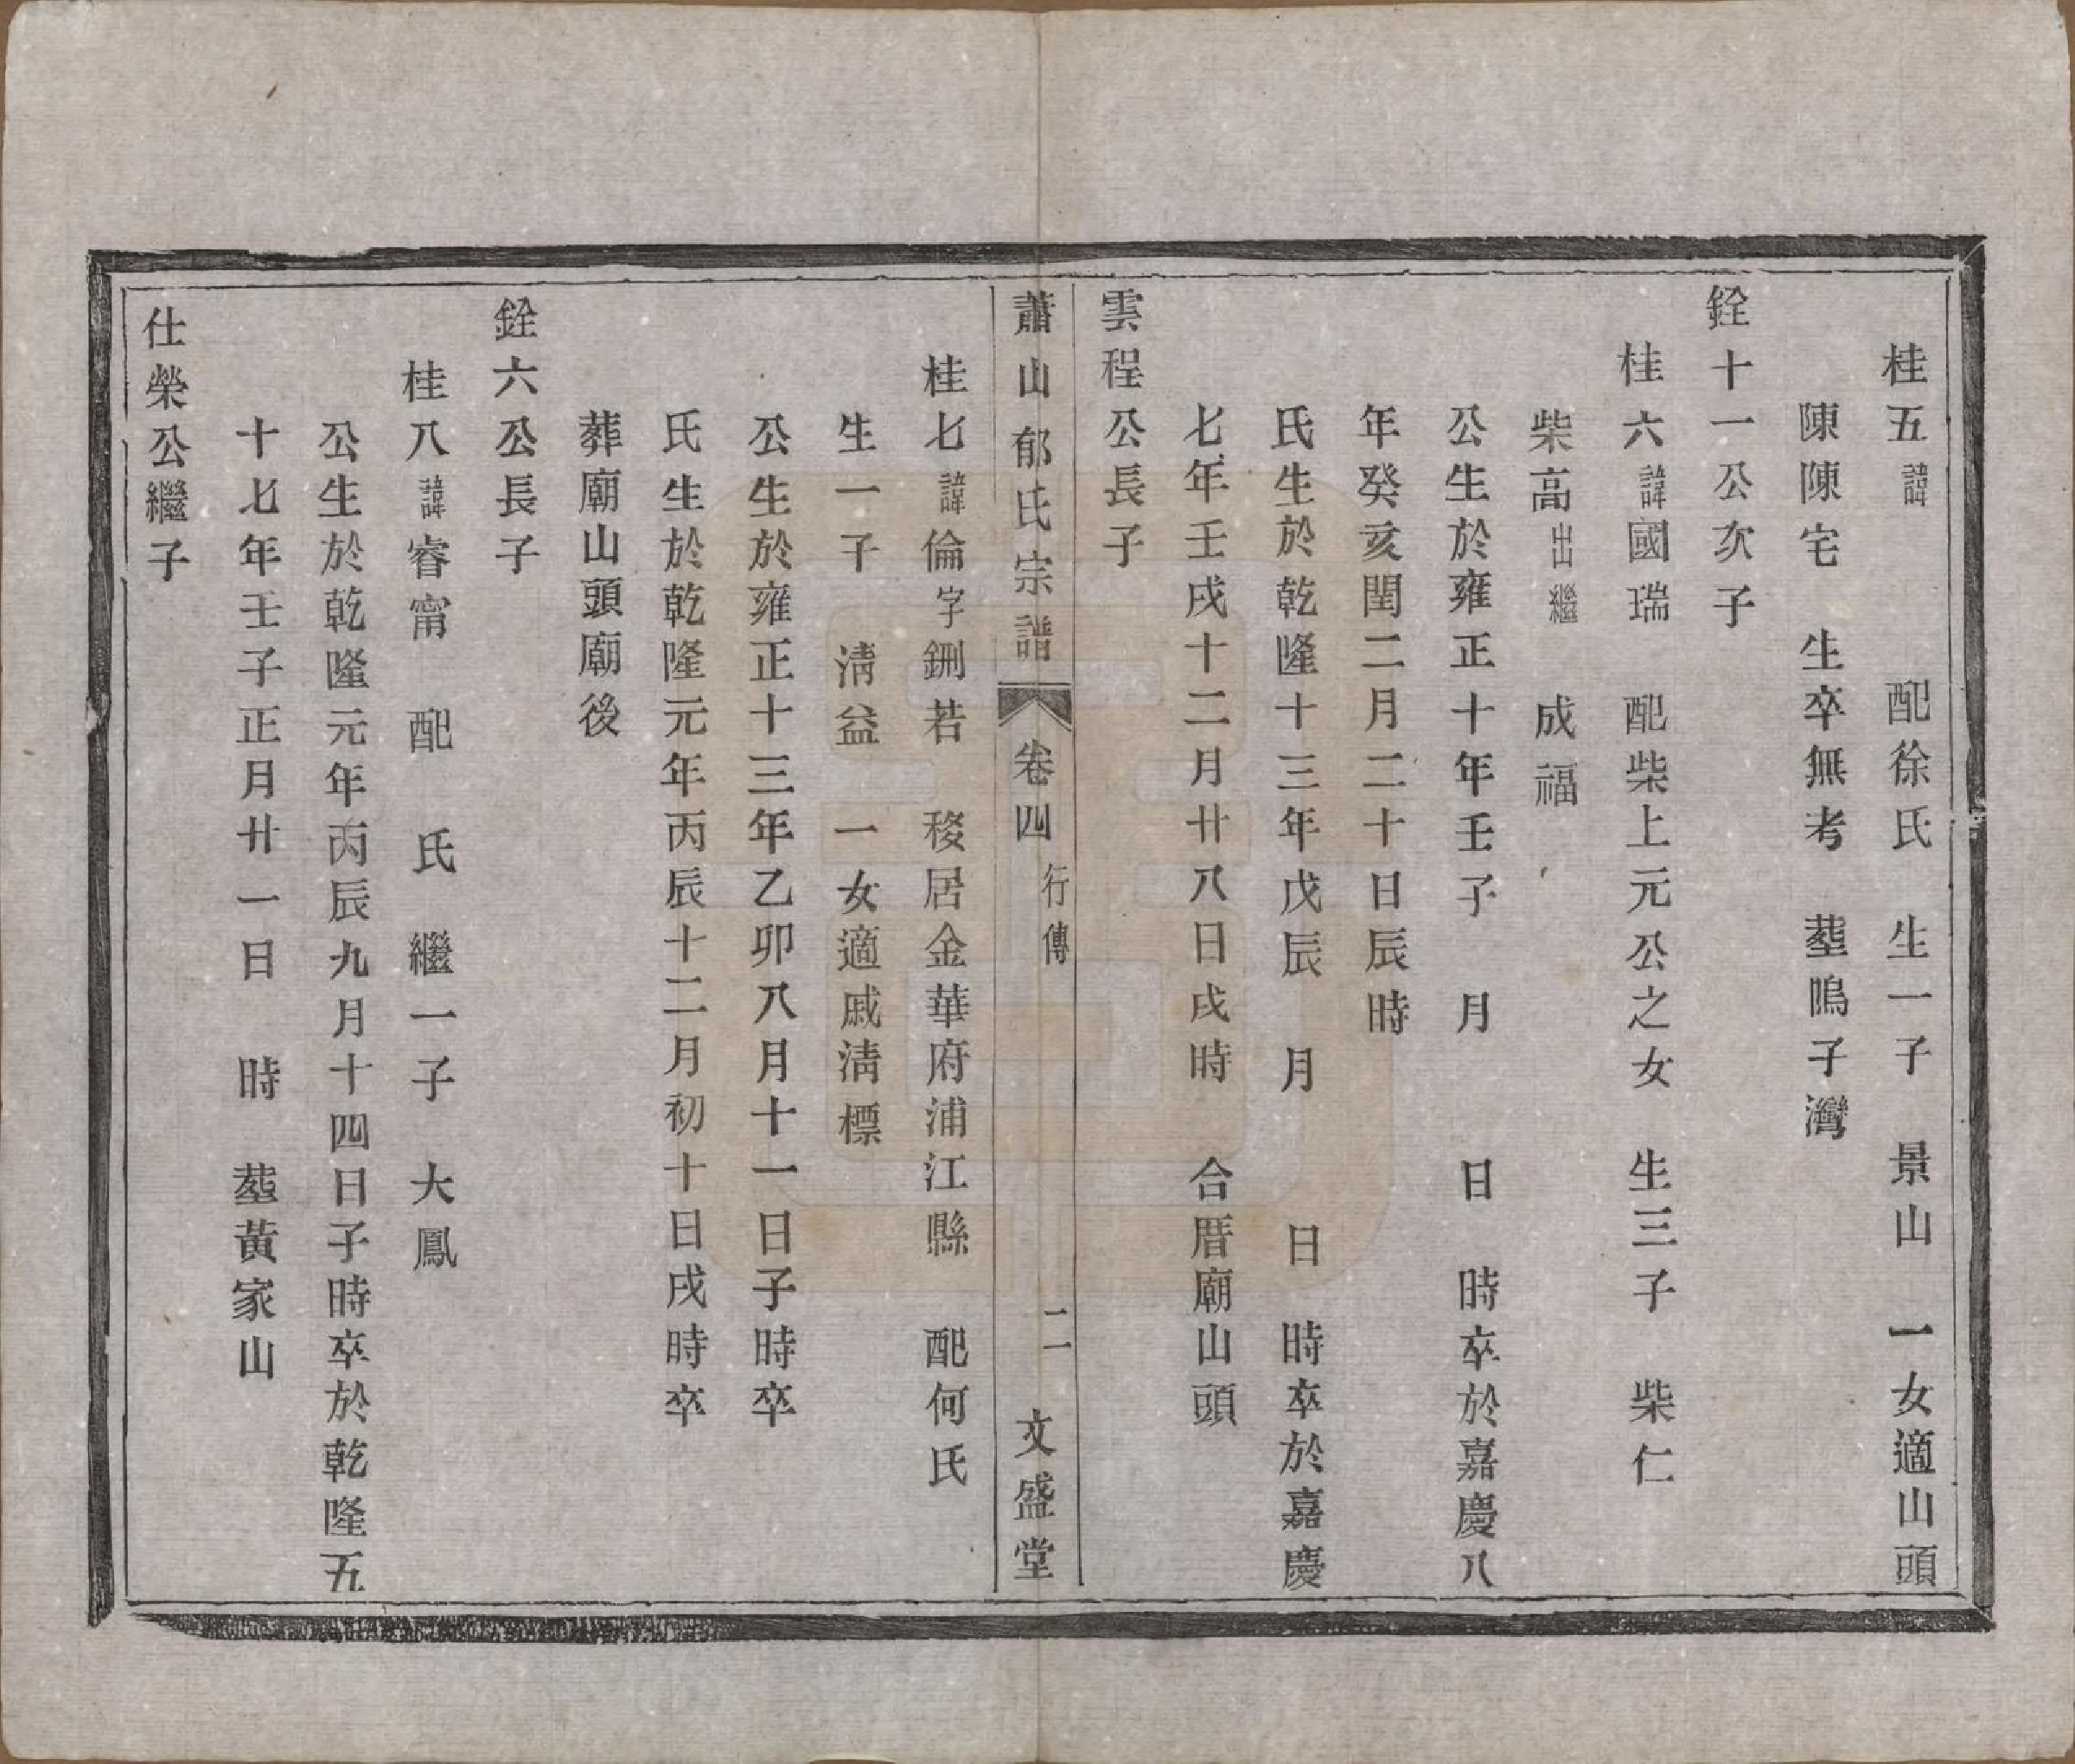 桂五諱　　配徐氏　生一子　景山　一女適山頭
陳陳宅　生卒無考　塟鳴子灣
銓十一公次子
桂六諱國瑞　配柴上元公之女　生三子　柴仁
柴高出繼　成福
公生於雍正十年壬子　月　　日　時卒於嘉慶八
年癸亥閏二月二十日辰時
氏生於乾隆十三年戊辰　月　　日　時卒於嘉慶
七年壬戌十二月廿八日戌時　合厝廟山頭
雲程公長子
蕭山郁氏宗譜　卷四　行傳　二　文盛堂
桂七諱倫字鉶若　移居金華府浦江縣　配何氏
生一子　淸益　一女適戚淸標
公生於雍正十三年乙卯八月十一日子時卒
氏生於乾隆元年丙辰十二月初十日戌時卒
葬廟山頭廟後
銓六公長子
桂八諱睿甯　配　氏　繼一子　大鳳
公生於乾隆元年丙辰九月十四日子時卒於乾隆五
十七年壬子正月廿一日　時　塟黃家山
仕榮公繼子